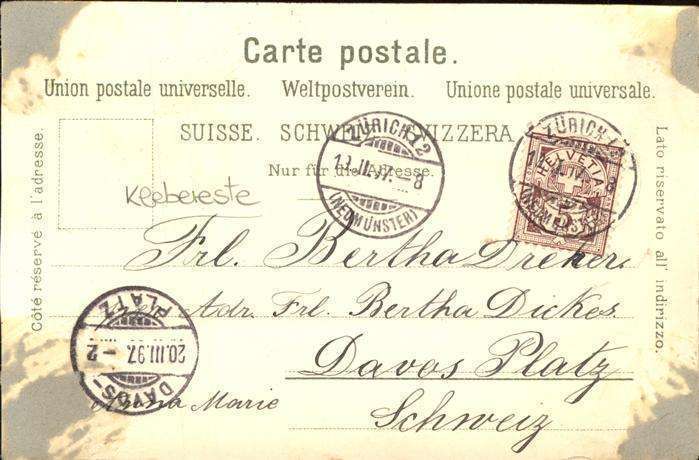 Carte postale.
Union postale universelle. Weltpostverein. Unione postale universale.
SUISSE. SCHWEIZ. SVIZZERA.
Nur für die Adresse.
Côté réservé à l'adresse.
Lato riservato all' indirizzo.
Klebereste
ZÜRICH 12
III. 97. - 8
(NEUMÜNSTER)
ZÜRICH
HELVETIA
5
(NEUMÜNSTER)
Frl. Bertha
Adr. Frl. Bertha Dickes
Davos Platz
Schweiz
Marie
DAVOS-
20.III.97. - 2
PLATZ